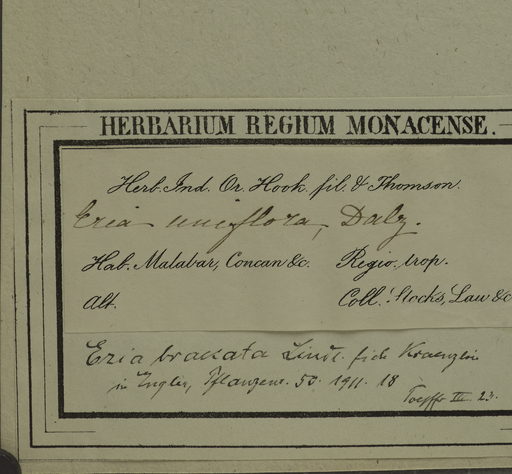 HERBARIUM REGIUM MONACENSE.
Herb. Ind. Or. Hook. fil. & Thomson.
Eria uniflora, Dalz.
Hab. Malabar, Concan &c. Regio. trop.
Alt. Coll. Stocks, Law &c
Eria braceata Lindl. fide Kraenzlin
in Engler, Pflanzenr. 50. 1911. 18
III. 23.